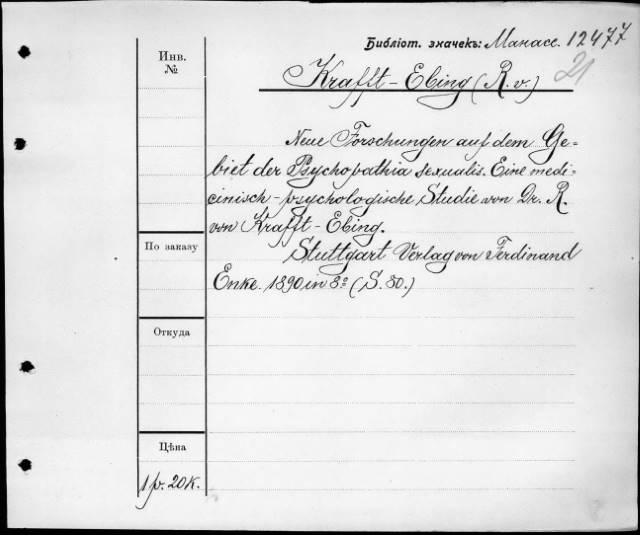 Библіот. значекъ: Манасс. 12477
21
Инв.
№
Krafft-Ebing (R. v.)
Neue Forschungen auf dem Ge=
biet der Psychopathia sexualis. Eine medi-
cinisch-psychologische Studie von Dr. R.
von Krafft-Ebing.
По заказу
Stuttgart Verlag von Ferdinand
Enke. 1890 in 8º (S. 80.)
Откуда
Цѣна
1 р. 20 к.